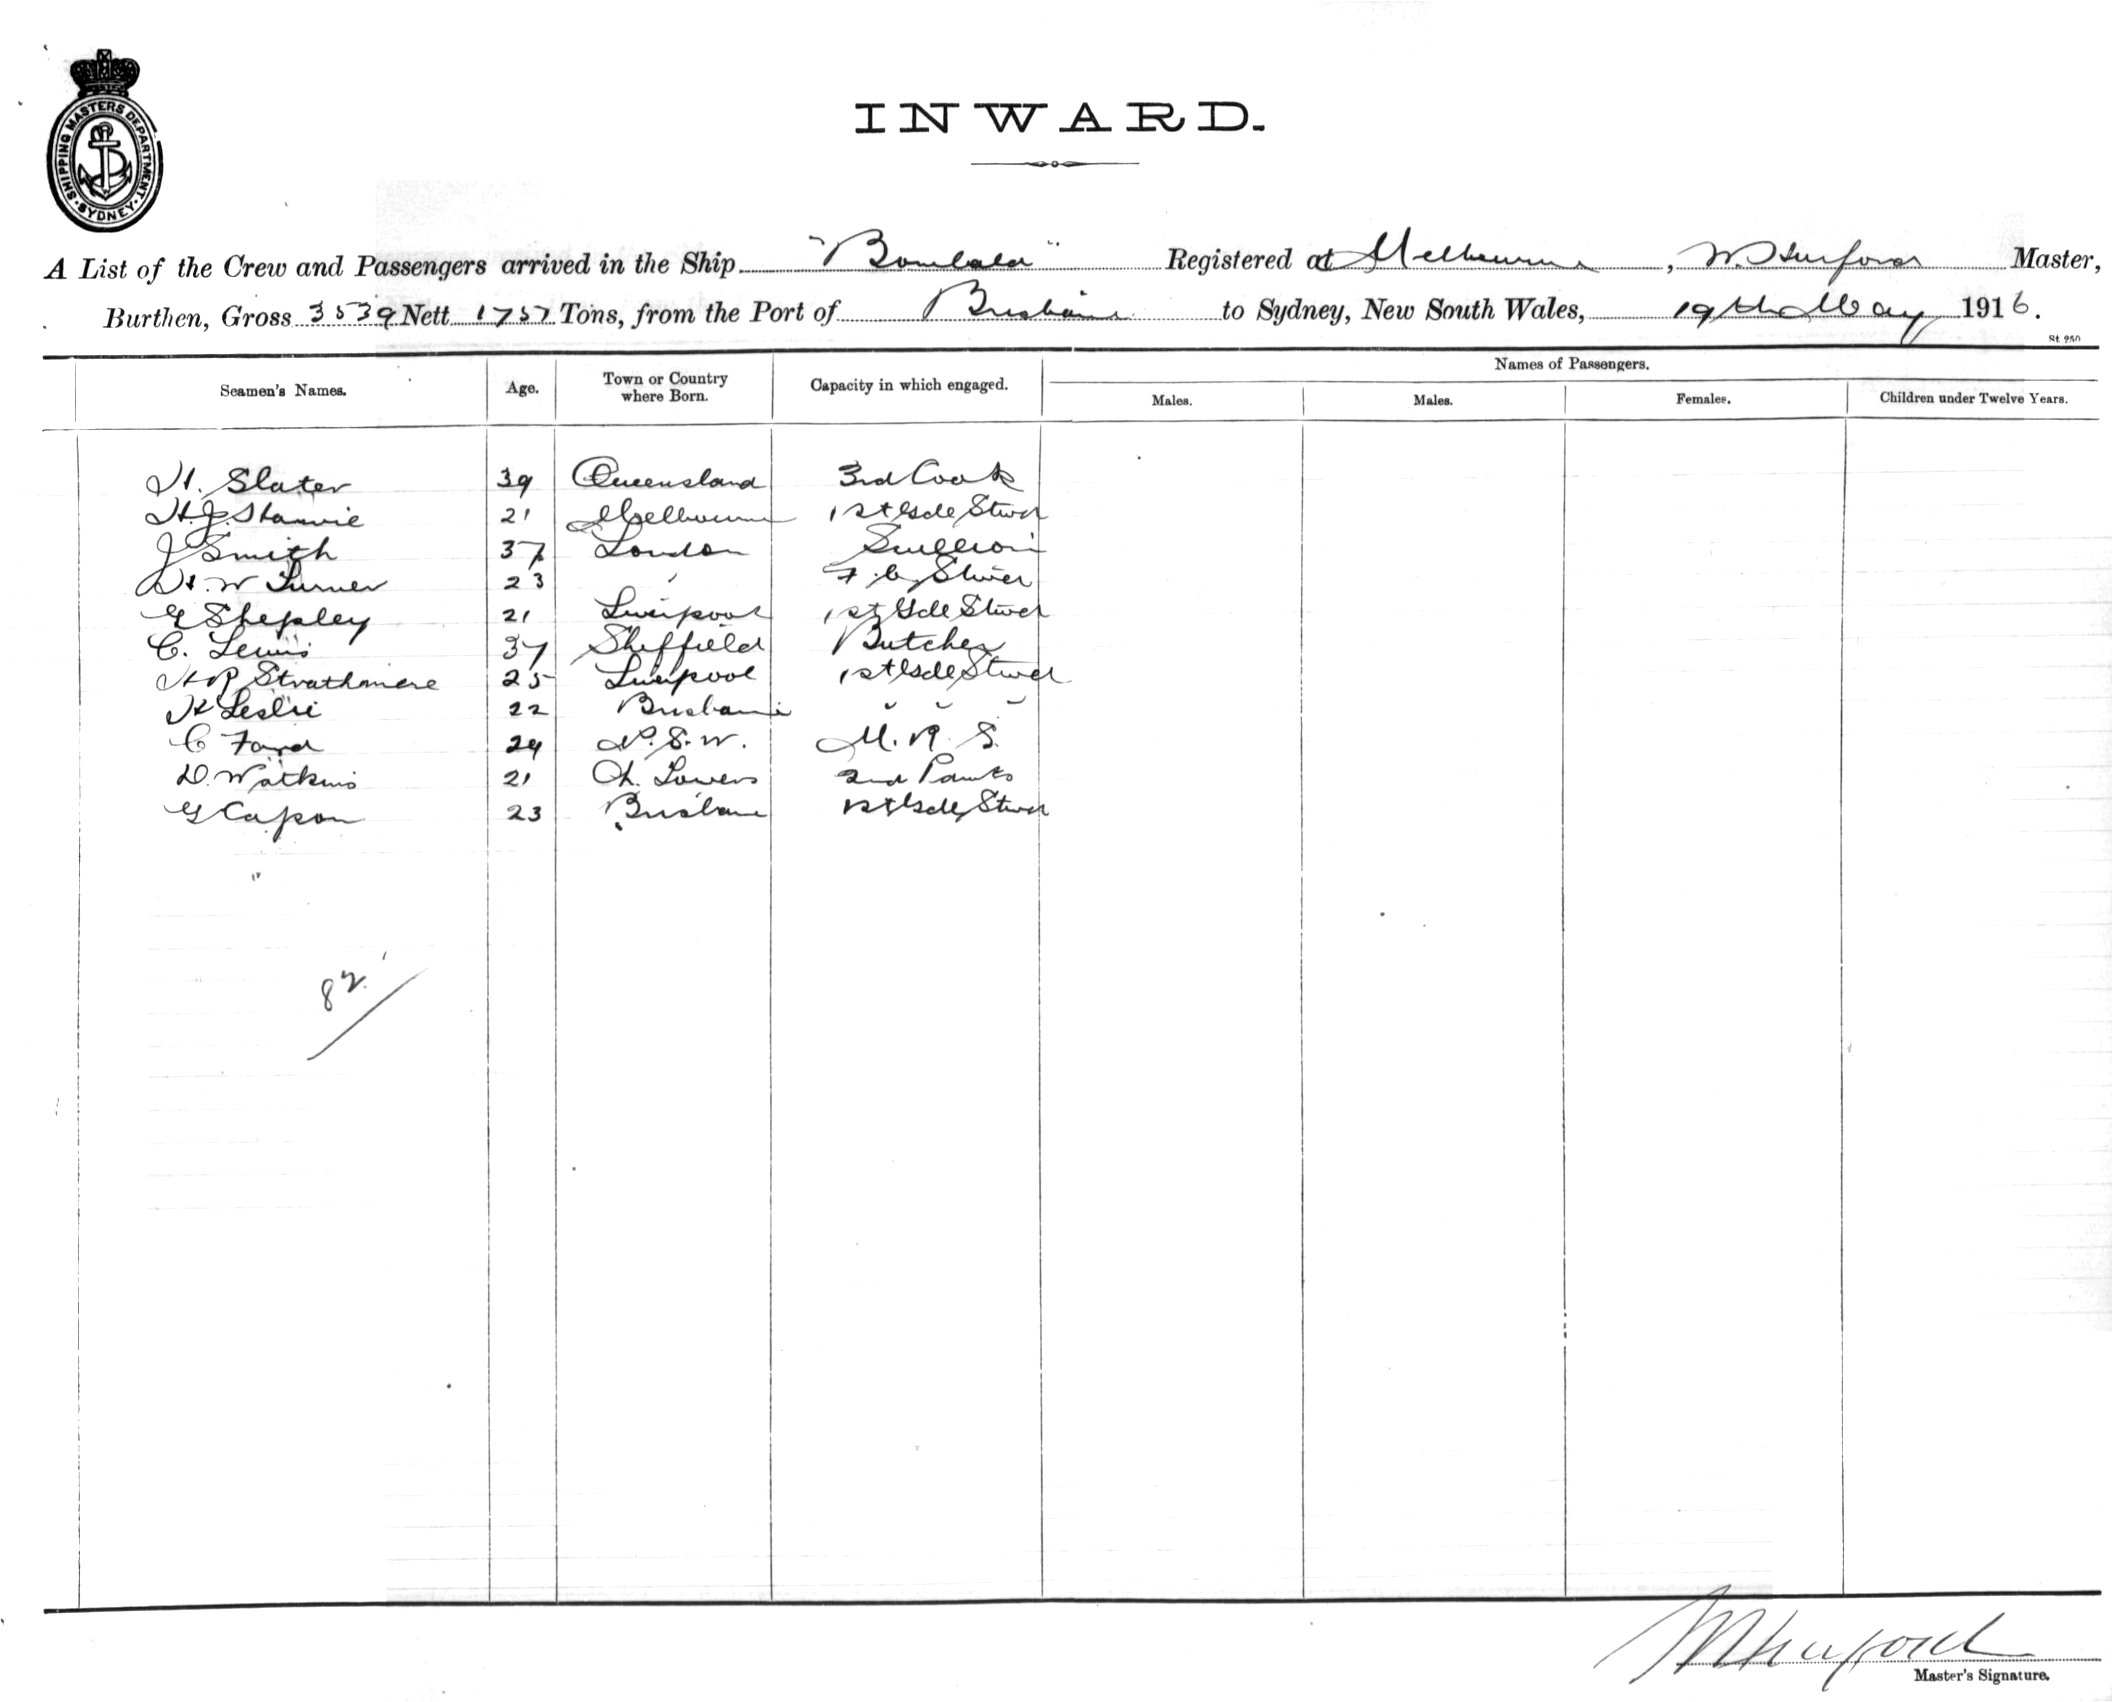 SHIPPING MASTERS DEPARTMENT. SYDNEY.
INWARD.
A List of the Crew and Passengers arrived in the Ship "Bombala" Registered at Melbourne, W. Hurford Master,
Burthen, Gross 3539 Nett 1757 Tons, from the Port of Brisbane to Sydney, New South Wales, 19th May 1916.
St 250
Seamen's Names. Age. Town or Country where Born. Capacity in which engaged. Names of Passengers.
Males. Males. Females. Children under Twelve Years.
H. Slater 39 Queensland 3rd Cook
H. J. 21 Melbourne 1st
J Smith 37 London
H. W Turner 23 "
E Shepley 21 Liverpool 1st
C. Lewis 37 Sheffield Butcher
H R Strathmere 25 Liverpool 1st
H Leslie 22 Brisbane " " "
C Ford 24 N. S. W. M. R. S.
D. Watkins 21 Ch. Towers 2nd
G Capon 23 Brisbane 1st
82
W Hurford
Master's Signature.